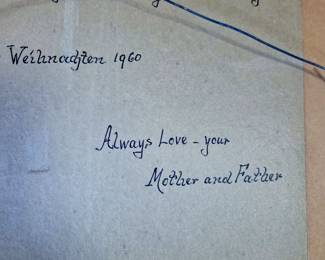 Weihnachten 1960
Always Love - your
Mother and Father